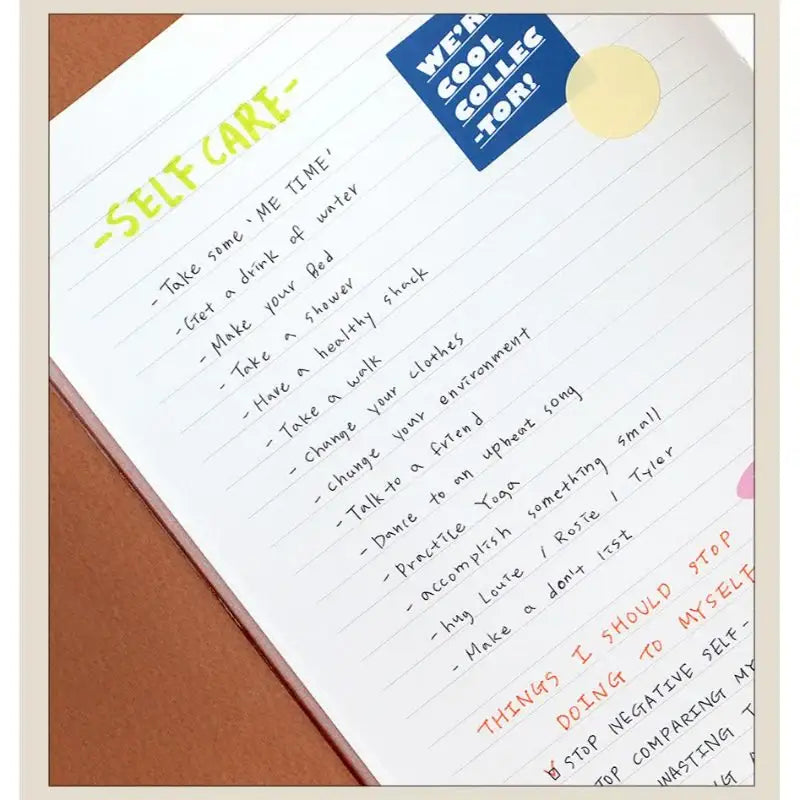 WE'R
COOL
COLLEC
-TOR!
-SELF CARE-
- Take some 'ME TIME'
- Get a drink of water
- Make your Bed
- Take a shower
- Have a healthy snack
- Take a walk
- change your clothes
- change your environment
- Talk to a friend
- Dance to an upbeat song
- Practice Yoga
- accomplish something small
- hug Louie / Rosie / Tyler
- Make a don't list
THINGS I SHOULD STOP
DOING TO MYSELF
STOP NEGATIVE SELF-
TOP COMPARING MY
WASTING T
NG